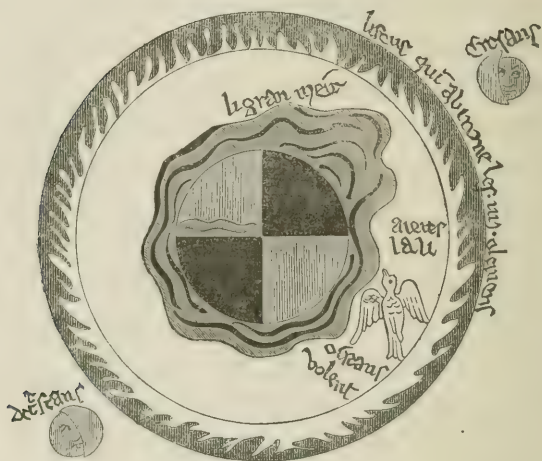 lifeus qui avirone les .iiii. elemens
cresans
ligran meir
aieres
lau
oiseaus
volent